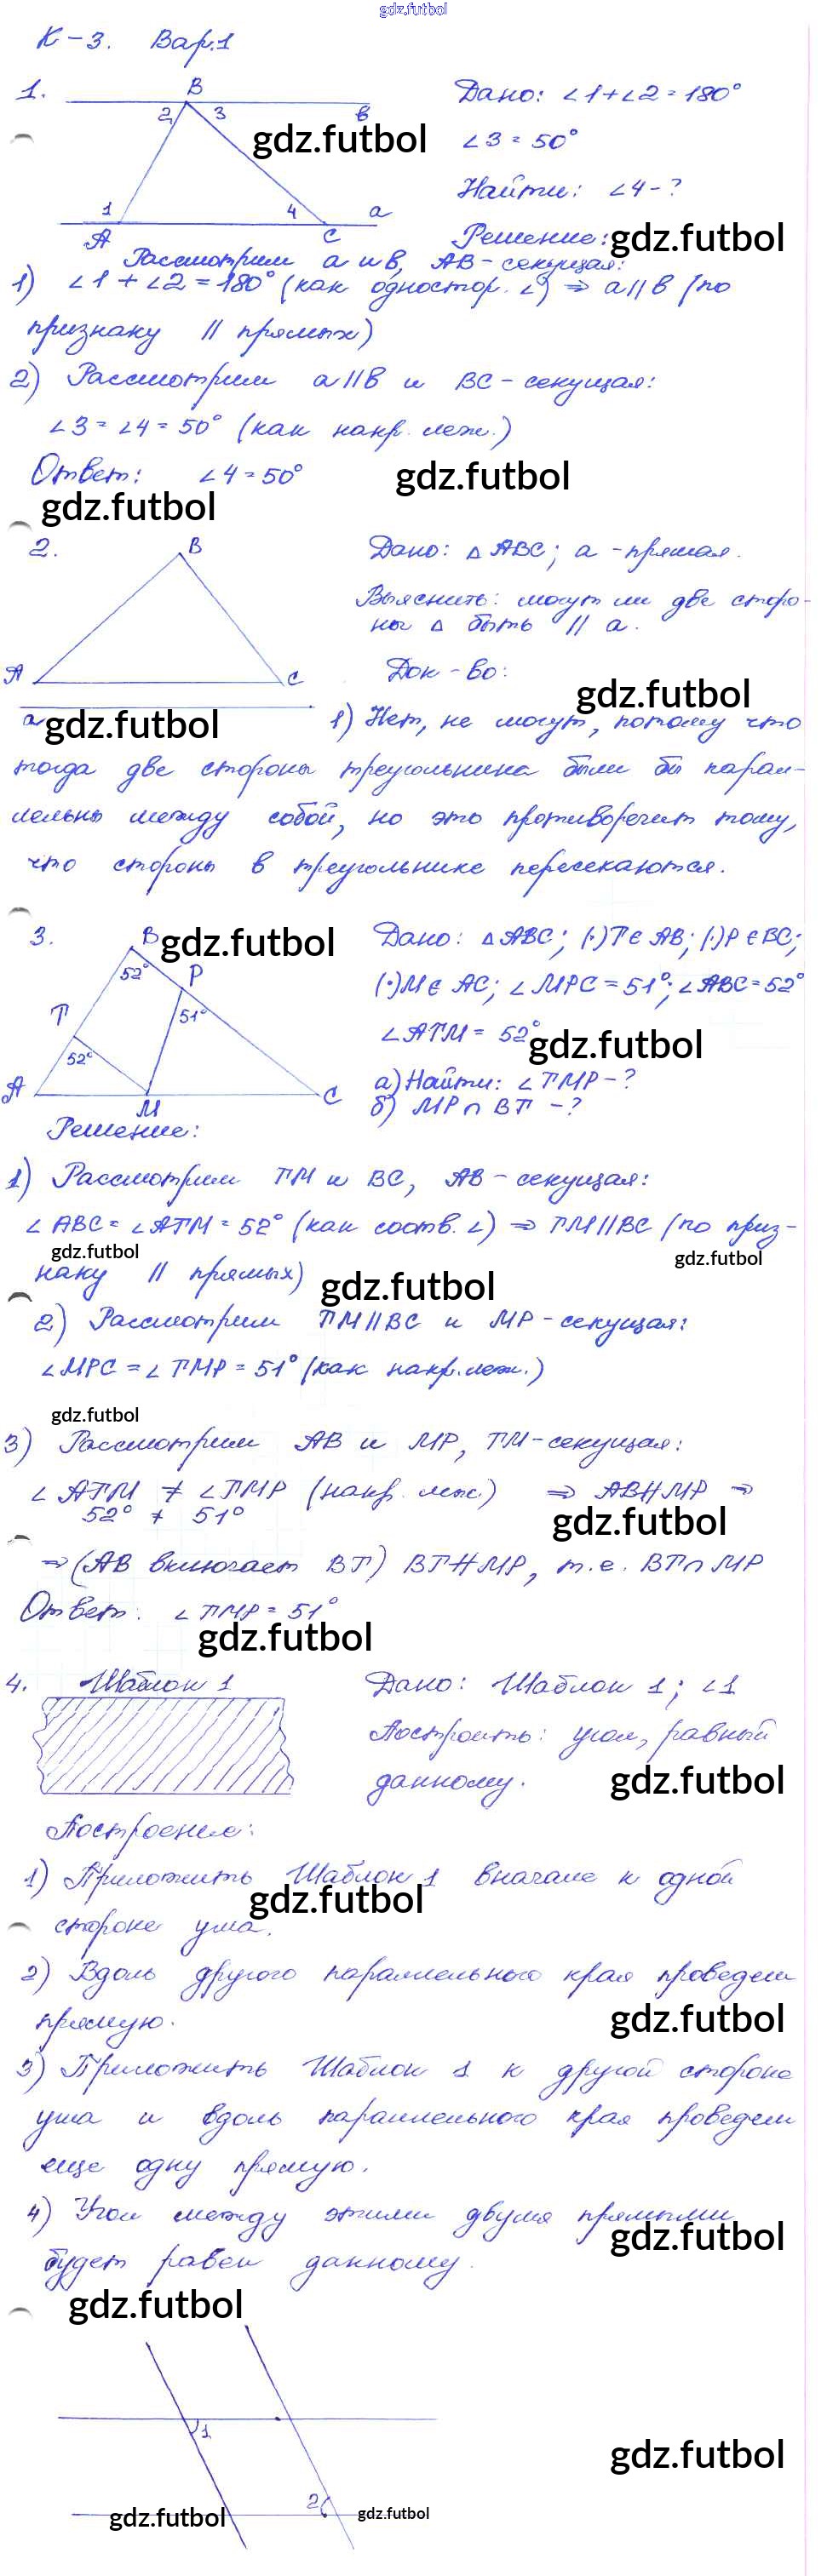 gdz.futbol
К-3. Вар.1
1.
B
2
3
в
1
4
a
A
C
Дано: ∠1+∠2=180°
gdz.futbol
∠3=50°
Найти: ∠4-?
Решение:
gdz.futbol
Рассмотрим a и в, AB-секущая:
1) ∠1+∠2=180° (как одностор. ∠) ⇒ a//в (по
признаку // прямых)
2) Рассмотрим a//в и BC-секущая:
∠3=∠4=50° (как накр. леж.)
Ответ: ∠4=50°
gdz.futbol
gdz.futbol
2.
B
A
C
a
Дано: △ABC; a-прямая.
Выяснить: могут ли две сторо-
ны △ быть // a.
Док-во:
gdz.futbol
gdz.futbol
1) Нет, не могут, потому что
тогда две стороны треугольника были бы парал-
лельны между собой, но это противоречит тому,
что стороны в треугольнике пересекаются.
3.
B
gdz.futbol
52°
P
T
51°
52°
A
M
C
Дано: △ABC; (·)T∈AB; (·)P∈BC;
(·)M∈AC; ∠MPC=51°; ∠ABC=52°
∠ATM=52°
gdz.futbol
а) Найти: ∠TMP-?
б) MP∩BT-?
Решение:
1) Рассмотрим TM и BC, AB-секущая:
∠ABC=∠ATM=52° (как соотв. ∠) ⇒ TM//BC (по приз-
gdz.futbol
gdz.futbol
наку // прямых)
gdz.futbol
2) Рассмотрим TM//BC и MP-секущая:
∠MPC=∠TMP=51° (как накр. леж.)
gdz.futbol
3) Рассмотрим AB и MP, TM-секущая:
∠ATM ≠ ∠TMP (накр. леж.) ⇒ AB∦MP ⇒
52° ≠ 51°
gdz.futbol
⇒ (AB включает BT) BT∦MP, т.е. BT∩MP
Ответ: ∠TMP=51°
gdz.futbol
4. Шаблон 1
Дано: Шаблон 1; ∠1
Построить: угол, равный
данному.
gdz.futbol
Построение:
1) Приложить Шаблон 1 вначале к одной
gdz.futbol
стороне угла.
2) Вдоль другого параллельного края проведем
прямую.
gdz.futbol
3) Приложить Шаблон 1 к другой стороне
угла и вдоль параллельного края проведем
еще одну прямую.
4) Угол между этими двумя прямыми
gdz.futbol
будет равен данному.
gdz.futbol
1
gdz.futbol
2
gdz.futbol
gdz.futbol